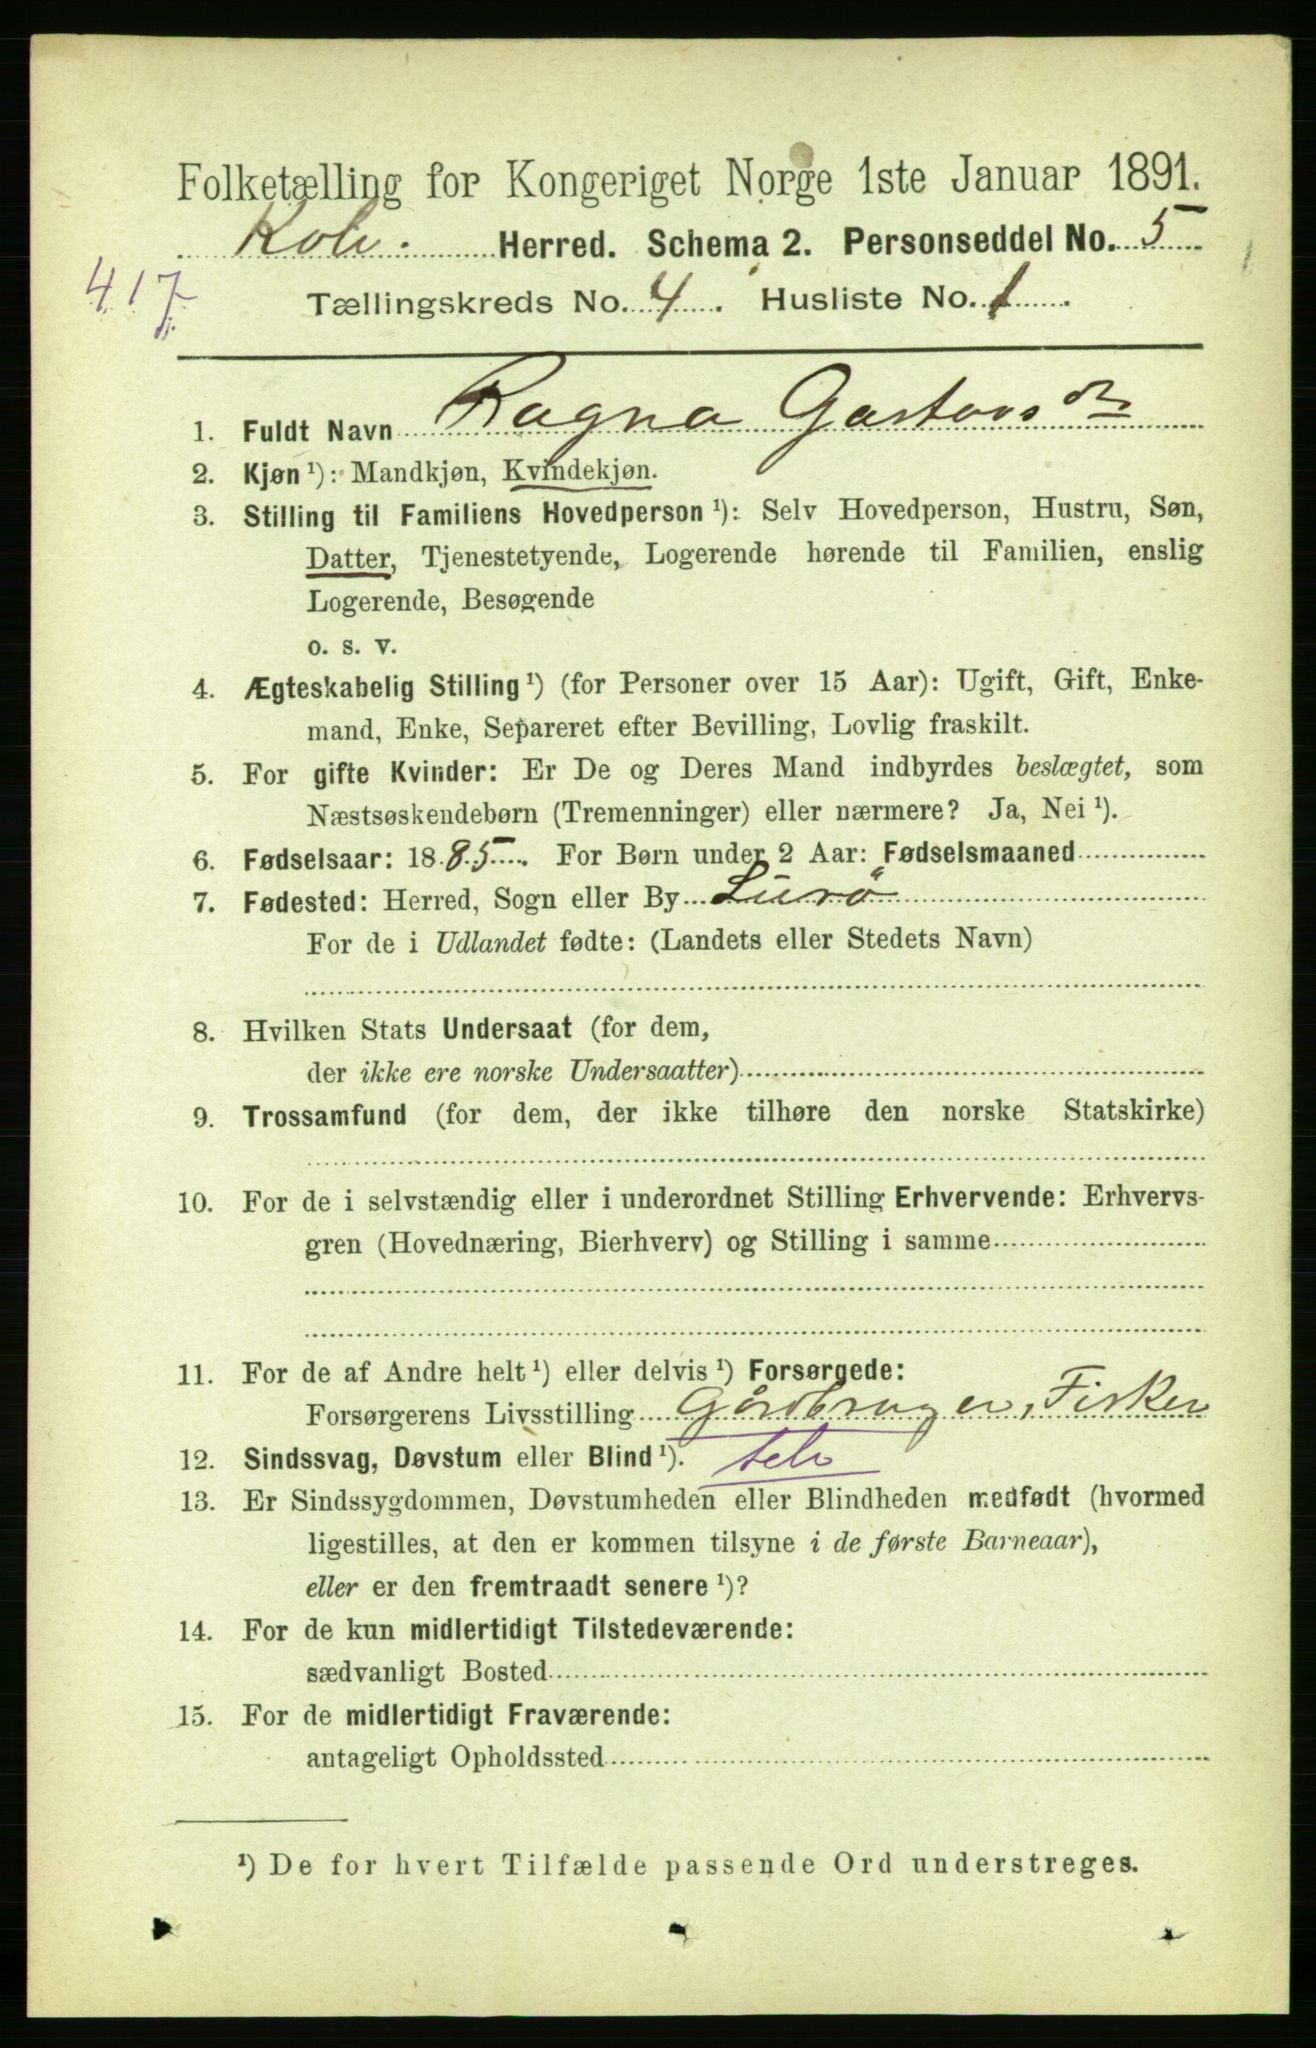 Folketælling for Kongeriget Norge 1ste Januar 1891.
Herred. Schema 2. Personseddel No. 5
417
Tællingskreds No. 4. Husliste No. 1
1. Fuldt Navn Ragna Gastavs
2. Kjøn ¹): Mandkjøn, Kvindekjøn.
3. Stilling til Familiens Hovedperson ¹): Selv Hovedperson, Hustru, Søn,
Datter, Tjenestetyende, Logerende hørende til Familien, enslig
Logerende, Besøgende
o. s. v.
4. Ægteskabelig Stilling ¹) (for Personer over 15 Aar): Ugift, Gift, Enke-
mand, Enke, Separeret efter Bevilling, Lovlig fraskilt.
5. For gifte Kvinder: Er De og Deres Mand indbyrdes beslægtet, som
Næstsøskendebørn (Tremenninger) eller nærmere? Ja, Nei ¹).
6. Fødselsaar: 1885. For Børn under 2 Aar: Fødselsmaaned
7. Fødested: Herred, Sogn eller By Lurö
For de i Udlandet fødte: (Landets eller Stedets Navn)
8. Hvilken Stats Undersaat (for dem,
der ikke ere norske Undersaatter)
9. Trossamfund (for dem, der ikke tilhøre den norske Statskirke)
10. For de i selvstændig eller i underordnet Stilling Erhvervende: Erhvervs-
gren (Hovednæring, Bierhverv) og Stilling i samme
11. For de af Andre helt ¹) eller delvis ¹) Forsørgede:
Forsørgerens Livsstilling Gårdbruger, Fisker
12. Sindssvag, Døvstum eller Blind ¹).
13. Er Sindssygdommen, Døvstumheden eller Blindheden medfødt (hvormed
ligestilles, at den er kommen tilsyne i de første Barneaar),
eller er den fremtraadt senere ¹)?
14. For de kun midlertidigt Tilstedeværende:
sædvanligt Bosted
15. For de midlertidigt Fraværende:
antageligt Opholdssted
¹) De for hvert Tilfælde passende Ord understreges.